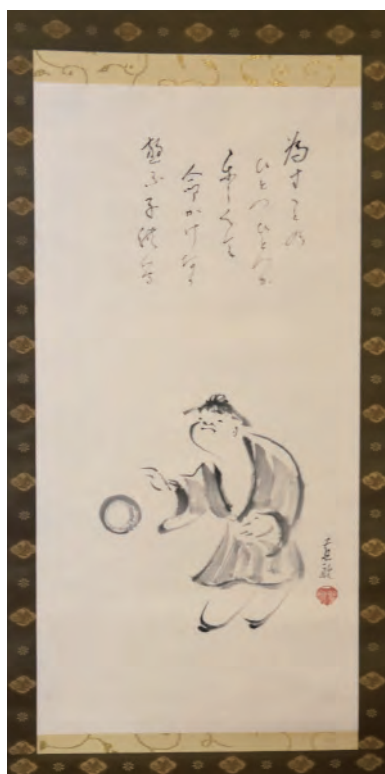 為すことの
ひとつひとつが
楽しくて
命がけなり
遊ぶ子供等